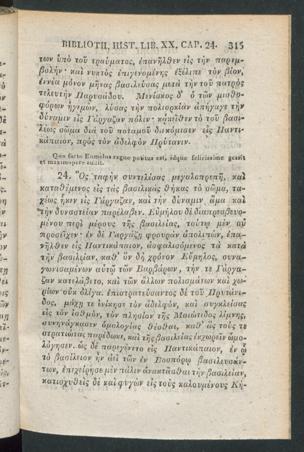 BIBLIOTH. HIST. LIB. XX, CAP. 24. 315
των ὑπὸ τοῦ τραύματος, ἐπανῆλθεν εἰς τὴν παρεμ-
βολήν· καὶ νυκτὸς ἐπιγενομένης ἐξέλιπε τὸν βίον,
ἐννέα μόνον μῆνας βασιλεύσας μετὰ τὴν τοῦ πατρὸς
τελευτὴν Παρυσάδου. Μενίσκος δ' ὁ τῶν μισθο-
φόρων ἡγεμὼν, λύσας τὴν πολιορκίαν ἀπήγαγε τὴν
δύναμιν εἰς Γάργαζαν πόλιν· κἀκεῖθεν τὸ τοῦ βασι-
λέως σῶμα διὰ τοῦ ποταμοῦ διεκόμισεν εἰς Παντι-
κάπαιον, πρὸς τὸν ἀδελφὸν Πρύτανιν.
Quo facto Eumelus regno potitus est, idque felicissime gessit
et maximopere auxit.
24. Ὃς ταφὴν συντελέσας μεγαλοπρεπῆ, καὶ
καταθέμενος εἰς τὰς βασιλικὰς θήκας τὸ σῶμα, τα-
χέως ἧκεν εἰς Γάργαζαν, καὶ τὴν δύναμιν ἅμα καὶ
τὴν δυναστείαν παρέλαβεν. Εὐμήλου δὲ διαπρεσβευο-
μένου περὶ μέρους τῆς βασιλείας, τούτῳ μὲν οὐ
προσεῖχεν· ἐν δὲ Γαργάζῃ φρουρὰν ἀπολιπὼν, ἐπα-
νῆλθεν εἰς Παντικάπαιον, ἀσφαλισόμενος τὰ κατὰ
τὴν βασιλείαν. καθ' ὃν δὴ χρόνον Εὔμηλος, συνα-
γωνισαμένων αὐτῷ τῶν Βαρβάρων, τήν τε Γάργα-
ζαν κατελάβετο, καὶ τῶν ἄλλων πολισμάτων καὶ χω-
ρίων οὐκ ὀλίγα. ἐπιστρατεύσαντος δὲ τοῦ Πρυτάνι-
δος, μάχῃ τε ἐνίκησε τὸν ἀδελφὸν, καὶ συγκλείσας
εἰς τὸν ἰσθμὸν, τὸν πλησίον τῆς Μαιώτιδος λίμνης,
συνηνάγκασεν ὁμολογίας θέσθαι, καθ' ἃς τούς τε
στρατιώτας παρέδωκε, καὶ τῆς βασιλείας ἐκχωρεῖν ὡμο-
λόγησεν. ὡς δὲ παρεγένετο εἰς Παντικάπαιον, ἐν ᾧ
τὸ βασίλειον ἦν ἀεὶ τῶν ἐν Βοσπόρῳ βασιλευσάν-
των, ἐπεχείρησε μὲν πάλιν ἀνακτᾶσθαι τὴν βασιλείαν,
κατισχυθεὶς δὲ καὶ φυγὼν εἰς τοὺς καλουμένους Κή-